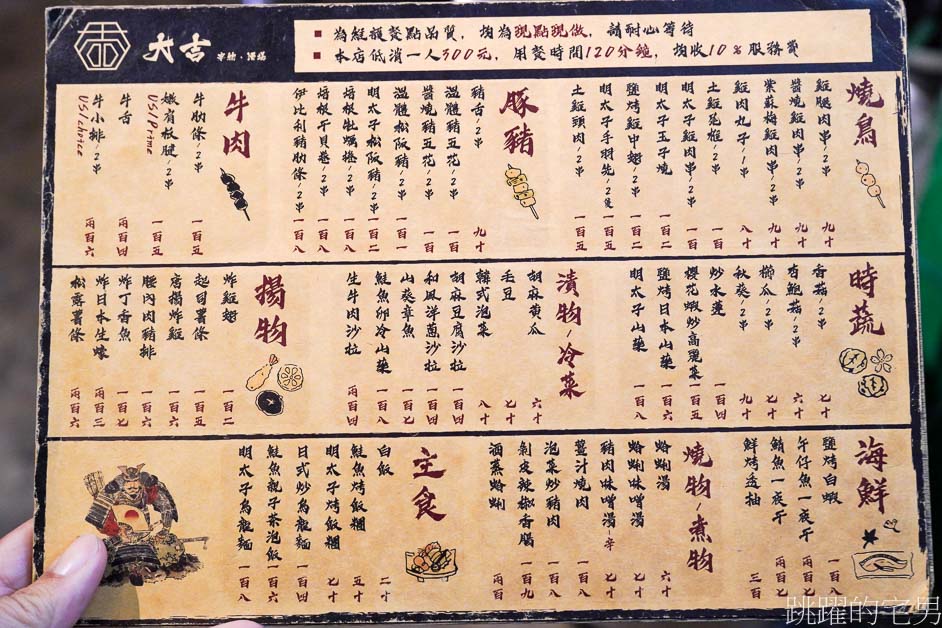 大吉
串燒·酒場
為維護餐點品質，均為現點現做，請耐心等待
本店低消一人300元，用餐時間120分鐘，均收10%服務費
燒鳥
雞腿肉串/2串 九十
醬燒雞肉串/2串 九十
紫蘇梅雞肉串/2串 九十
雞肉丸子/1串 八十
土雞屁框/2串 一百
明太子雞肉串/2串 一百二
明太子玉子燒 一百二
鹽烤雞中翅/2串 一百
明太子手羽先/2隻
土雞頭肉/2串 一百五
豚豬
豬舌/2串 九十
溫體豬五花/2串 一百
醬燒豬五花/2串 一百
溫體松阪豬/2串 一百一
明太子松阪豬/2串 一百二
培根牡蠣捲/2串 一百八
培根干貝卷/2串 一百八
伊比利豬肋條/2串 一百八
牛肉
牛肋條/2串 一百五
嫩肩板腱/2串
US/Prime 一百五
牛舌 兩百四
牛小排/2串
US/choice 兩百六
時蔬
香菇/2串 七十
杏鮑菇/2串 六十
櫛瓜/2串 七十
秋葵/2串 九十
炒水蓮 一百四
櫻花蝦炒高麗菜 一百五
鹽烤日本山藥 一百六
明太子山藥 一百八
漬物/冷菜
胡麻黃瓜 六十
毛豆 七十
韓式泡菜 八十
胡麻豆腐沙拉 一百四
和風洋蔥沙拉 一百四
山葵章魚 一百七
鮭魚卵冷山藥 一百八
生牛肉沙拉 兩百四
揚物
炸雞翅 一百二
起司薯條 一百五
唐揚炸雞 一百六
腰內肉豬排 一百六
炸丁香魚 一百七
炸日本生蠔 兩百三
松露薯條 兩百六
海鮮
鹽烤白蝦 一百八
午仔魚一夜干 兩百七
鯖魚一夜干 兩百七
鮮烤透抽 三百
燒物/煮物
蛤蜊湯 六十
蛤蜊味噌湯
豬肉味噌湯/辛 七十
薑汁燒肉 一百八
泡菜炒豬肉 一百八
剝皮辣椒香腸 一百九
酒蒸蛤蜊 兩百
主食
白飯 二十
鮭魚烤飯糰 五十
明太子烤飯糰 七十
日式炒烏龍麵 一百四
鮭魚親子茶泡飯 一百六
明太子烏龍麵 一百八
跳躍的宅男